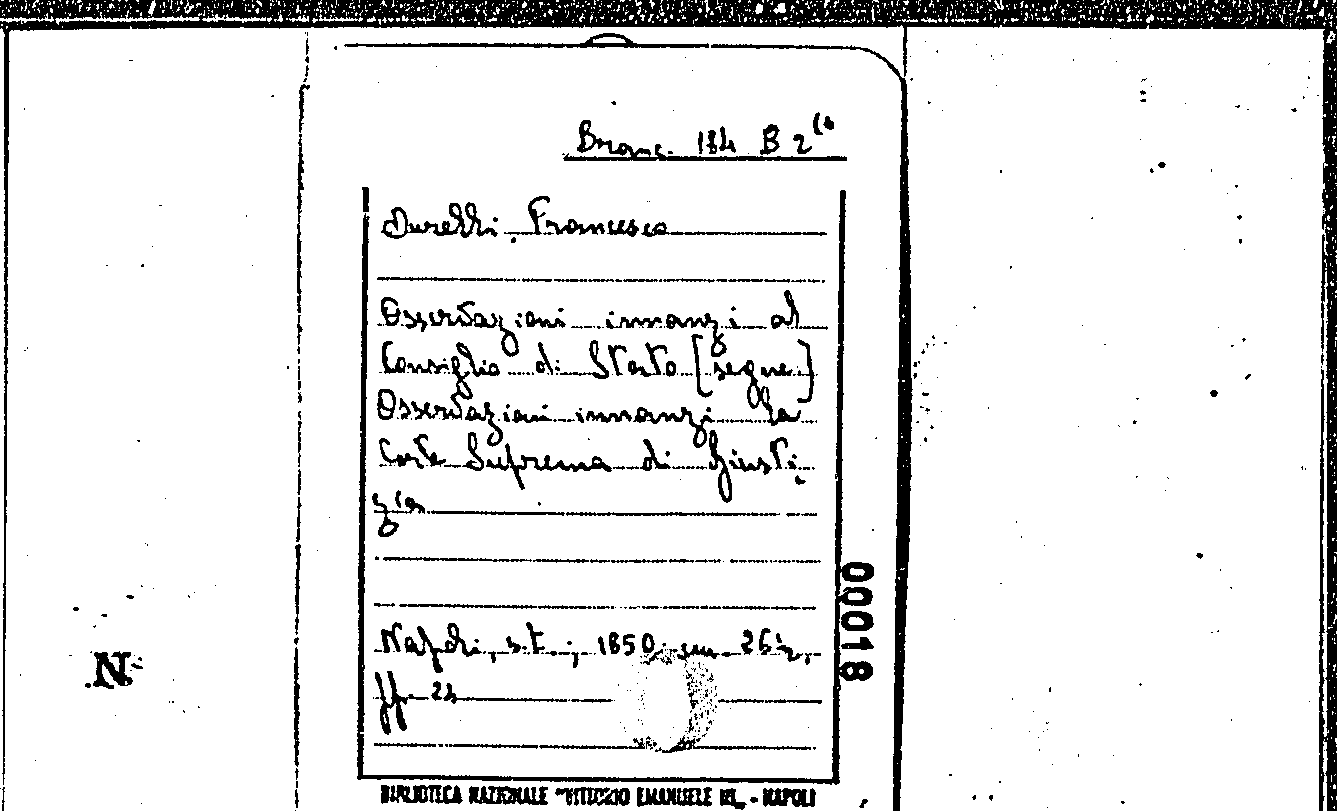 Branc. 184 B 2
Durelli, Francesco
Osservazioni innanzi al
Consiglio di Stato [segue]
Osservazioni innanzi la
Corte Suprema di Giusti,
zia
Napoli, s.t., 1850, cm. 26½,
ff. 24
00018
N
BIBLIOTECA NAZIONALE "VITTORIO EMANUELE III„ - NAPOLI